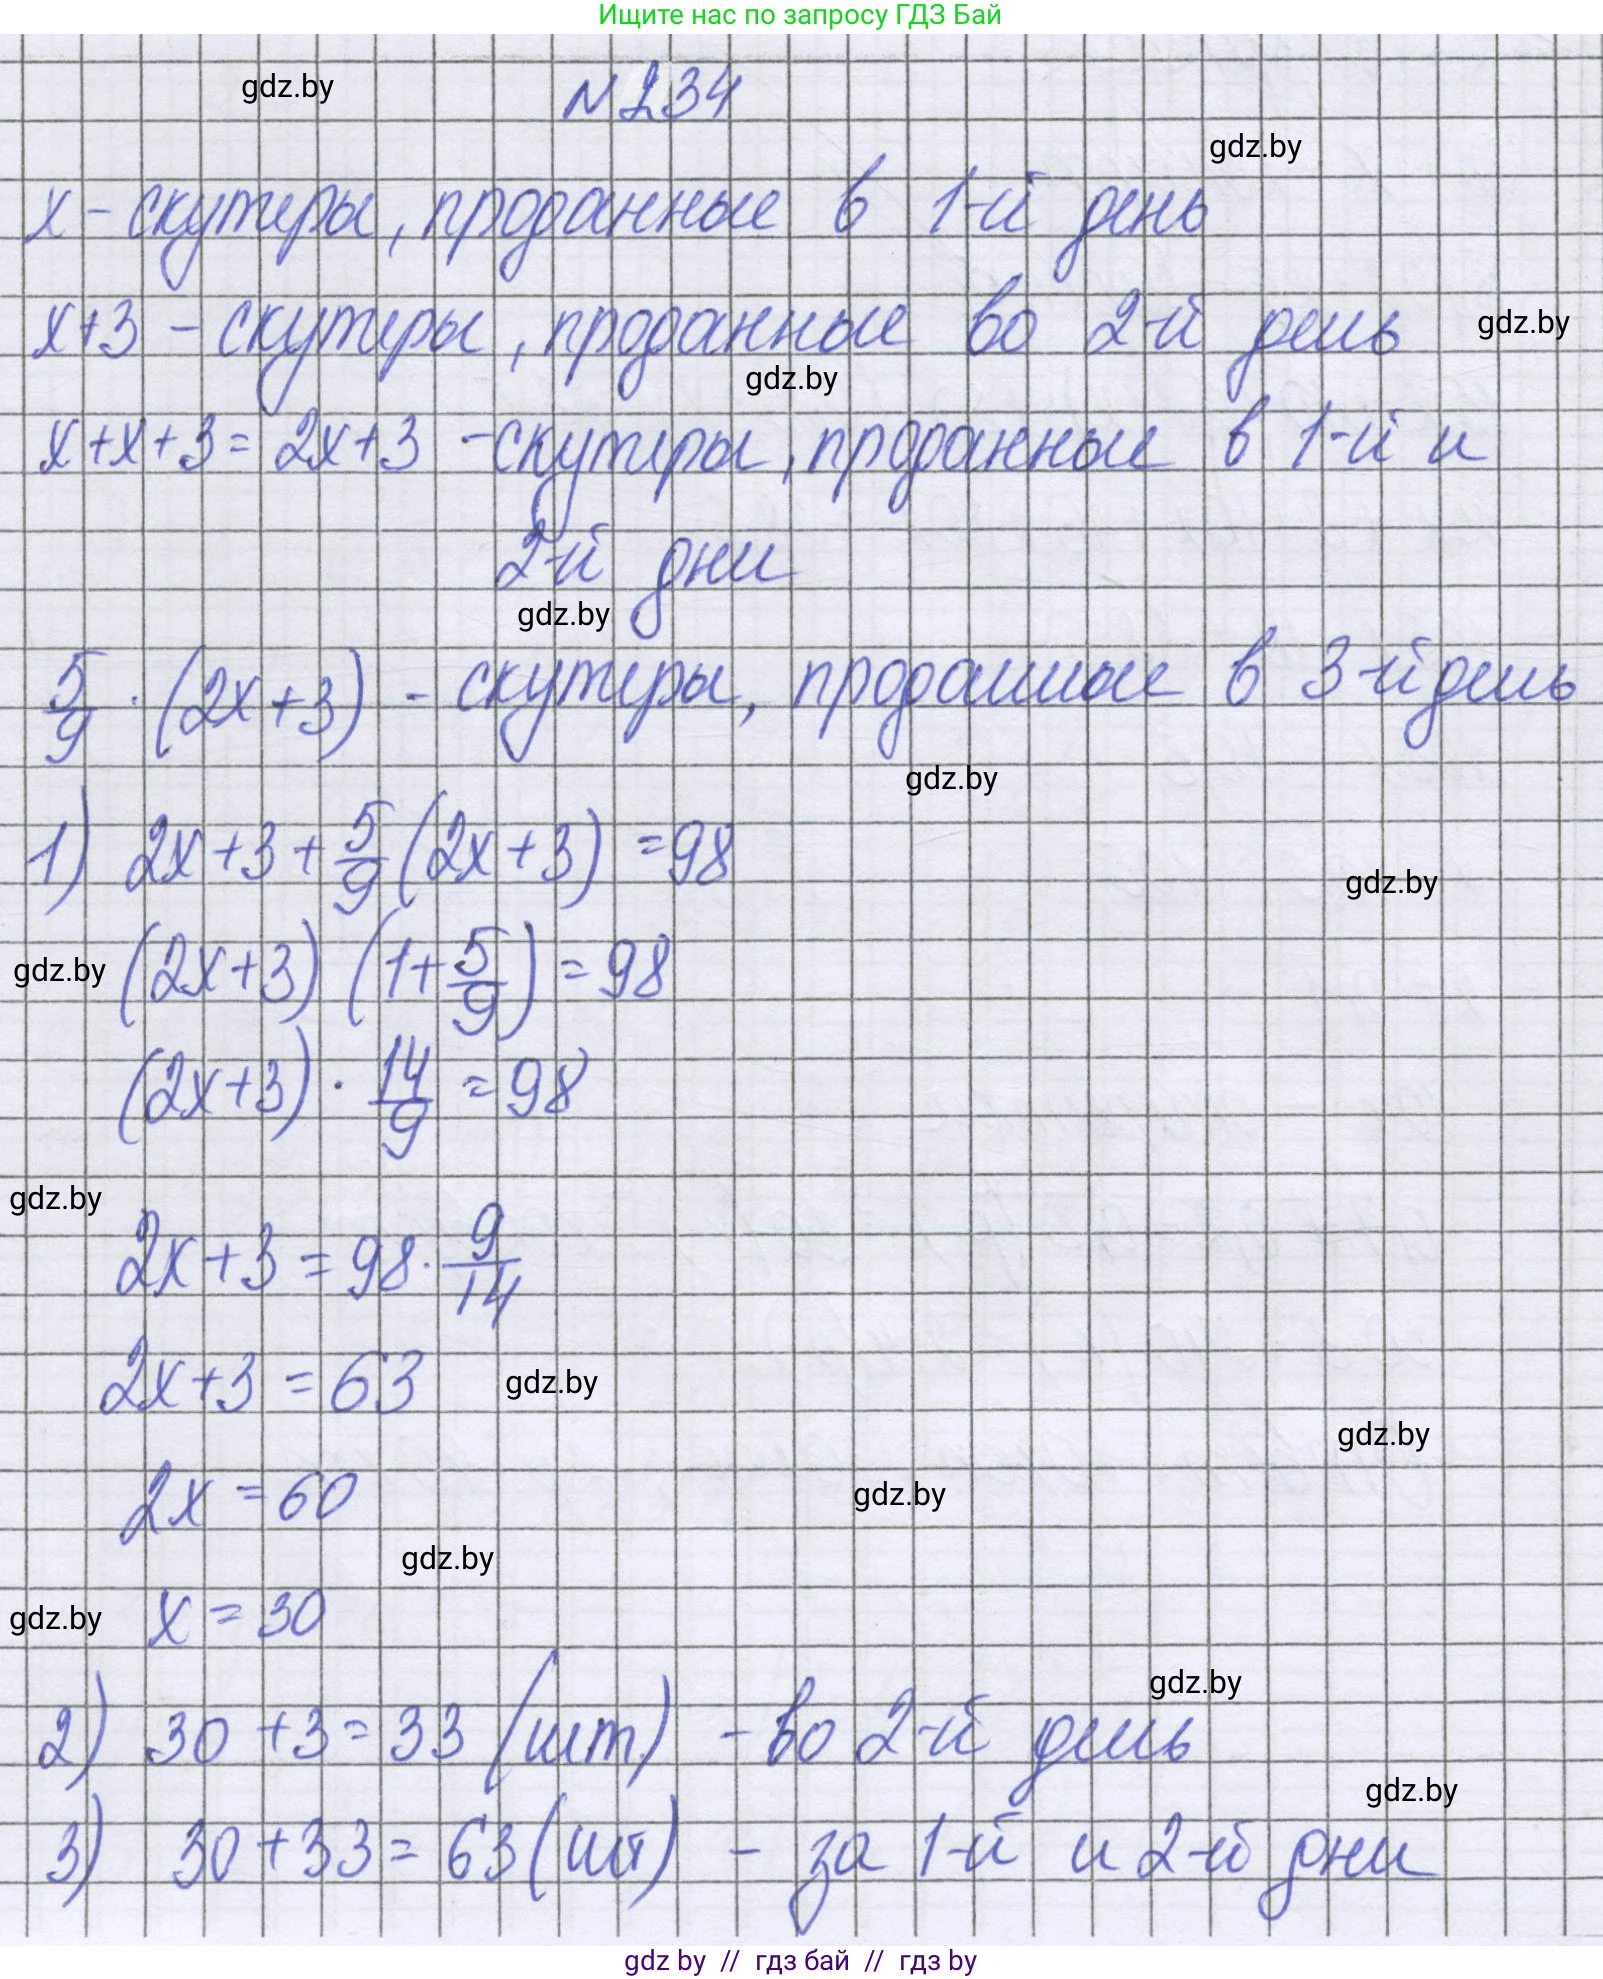 Ищите нас по запросу ГДЗ Бай
gdz.by
N 234
gdz.by
x - скутеры, проданные в 1-й день
x+3 - скутеры, проданные во 2-й день
gdz.by
gdz.by
x+x+3 = 2x+3 - скутеры, проданные в 1-й и
2-й дни
gdz.by
5/9 · (2x+3) - скутеры, проданные в 3-й день
gdz.by
1) 2x+3+5/9(2x+3) = 98
gdz.by
gdz.by
(2x+3) (1+5/9) = 98
(2x+3) · 14/9 = 98
gdz.by
2x+3 = 98 · 9/14
2x+3 = 63
gdz.by
gdz.by
2x = 60
gdz.by
gdz.by
gdz.by
x = 30
gdz.by
2) 30+3=33 (шт.) - во 2-й день
gdz.by
3) 30+33=63 (шт) - за 1-й и 2-й дни
gdz by // гдз бай // гдз by